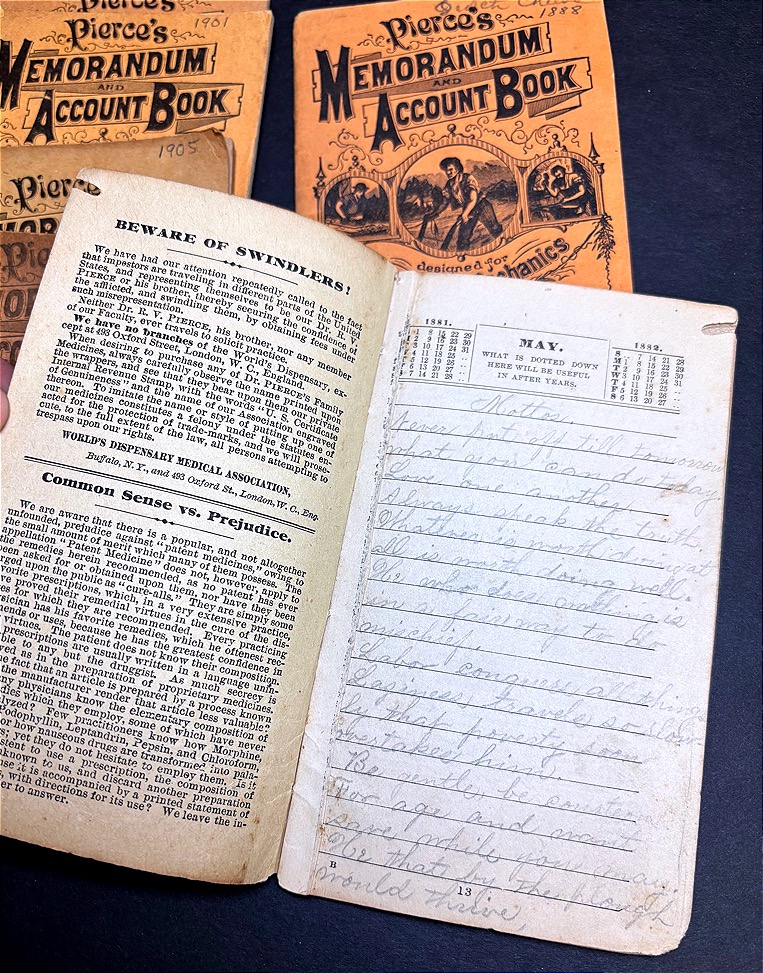 Pierce's
1901
MEMORANDUM
AND
ACCOUNT BOOK
1905
Pierce's
1888
Pierce's
MEMORANDUM
AND
ACCOUNT BOOK
designed for
chanics
BEWARE OF SWINDLERS!
We have had our attention repeatedly called to the fact
that impostors are traveling in different parts of the United
States, and representing themselves to be our Dr. R. V.
PIERCE or his brother, thereby securing the confidence of
the afflicted, and swindling them, by obtaining fees under
such misrepresentation.
Neither Dr. R. V. PIERCE, his brother, nor any member
of our Faculty, ever travels to solicit practice.
We have no branches of the World's Dispensary, ex-
cept at 493 Oxford Street, London, W. C., England.
When desiring to purchase any of Dr. PIERCE'S Family
Medicines, always carefully observe the name printed upon
the wrappers, and see that they bear upon them our private
Internal Revenue Stamp, with the words "U. S. Certificate
of Genuineness" and the name of our association engraved
thereon. To imitate the name or style of putting up one of
our medicines constitutes a felony under the statutes en-
acted for the protection of trade-marks, and we will prose-
cute, to the full extent of the law, all persons attempting to
trespass upon our rights.
WORLD'S DISPENSARY MEDICAL ASSOCIATION,
Buffalo, N. Y., and 493 Oxford St., London, W. C., Eng.
Common Sense vs. Prejudice.
We are aware that there is a popular, and not altogether
unfounded, prejudice against "patent medicines," owing to
the small amount of merit which many of them possess. The
appellation "Patent Medicine" does not, however, apply to
the remedies herein recommended, as no patent has ever
been asked for or obtained upon them, nor have they been
urged upon the public as "cure-alls." They are simply some
favorite prescriptions, which, in a very extensive practice,
have proved their remedial virtues in the cure of the dis-
eases for which they are recommended. Every practicing
physician has his favorite remedies, which he oftenest rec-
ommends or uses, because he has the greatest confidence in
virtues. The patient does not know their composition.
prescriptions are usually written in a language unin-
ble to any but the druggist. As much secrecy is
ved as in the preparation of proprietary medicines.
he fact that an article is prepared by a process known
the manufacturer render that article less valuable?
ny physicians know the elementary composition of
dies which they employ, some of which have never
lyzed? Few practitioners know how Morphine,
Podophyllin, Leptandrin, Pepsin, and Chloroform,
or how nauseous drugs are transformed into pala-
s; yet they do not hesitate to employ them. Is it
sistent to use a prescription, the composition of
nknown to us, and discard another preparation
use it is accompanied by a printed statement of
s, with directions for its use? We leave the in-
er to answer.
1881.
1 8 15 22 29
2 9 16 23 30
3 10 17 24 31
4 11 18 25
5 12 19 26
6 13 20 27
7 14 21 28
MAY.
WHAT IS DOTTED DOWN
HERE WILL BE USEFUL
IN AFTER YEARS.
1882.
S 7 14 21 28
M 1 8 15 22 29
T 2 9 16 23 30
W 3 10 17 24 31
T 4 11 18 25
F 5 12 19 26
S 6 13 20 27
Never put off till tomorrow
what you can do today.
Love one another
Always speak the truth.
Whatever is worth doing at
all is worth doing well.
He who does
in
Labor conquers all things
Laziness travels so slow
ly that poverty soon
overtakes him.
Be gentle be courteous
For age and want
save while you may.
He that by the plough
would thrive,
B
13